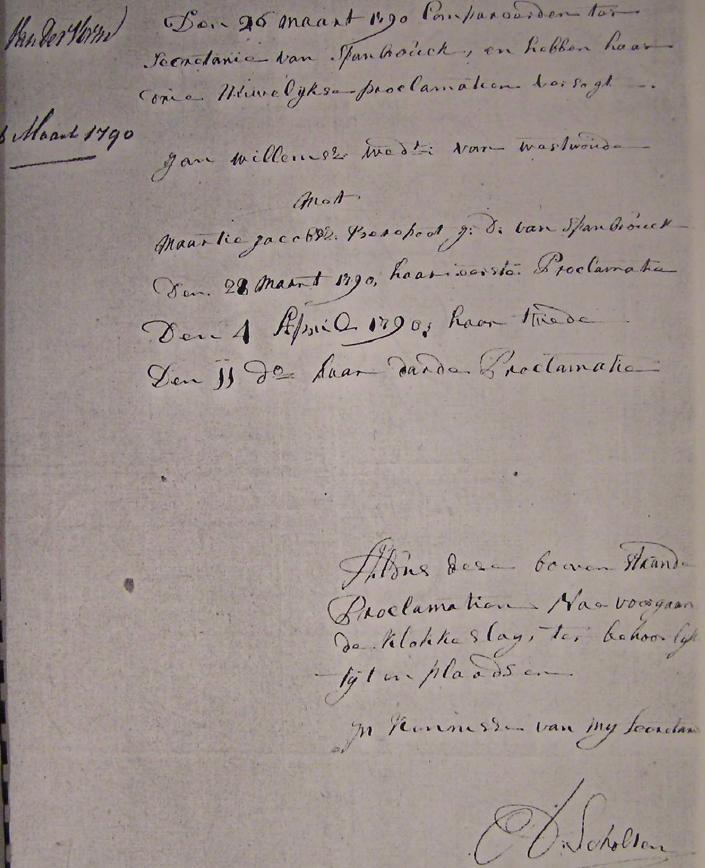 Den 26 Maart 1790 Compareerden ter
Secretarie van Spanbroek, en hebben haar
drie Huwelijkse proclamatien versogt
Maart 1790
Jan Willemsz. wedr: van Westwoude
Met
Maartie Jacobsz. j: D: van Spanbroek
Den 28 Maart 1790, haar eerste Proclamatie
Den 4 April 1790, haar twede
Den 11 do haar darde Proclamatie
Aldus dese boven staande
Proclamatien Na voorgaan
de klokke slag, ter behoorlijk
tijt en plaadsen
In kennisse van my Secretar
Scholten